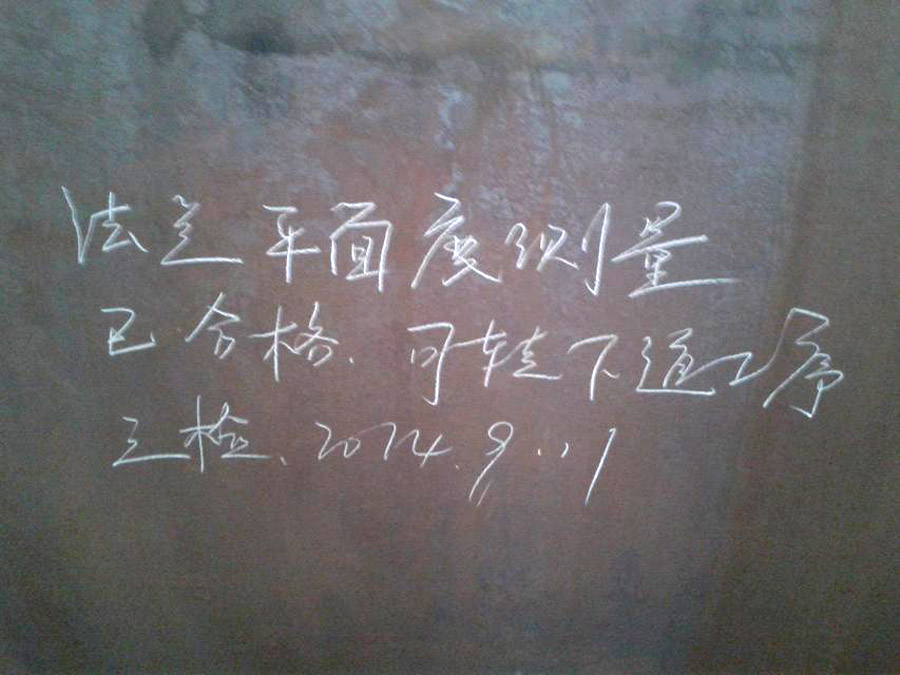 法兰平面度测量
已合格、可转下道工序
三检、2014.9.11